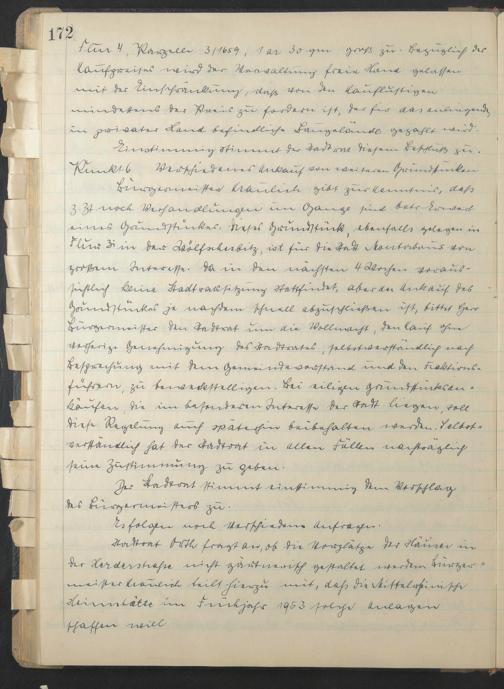 172
Flur 4, Parzelle 3/1659, 1 ar 30 qm groß zu. Bezüglich des
Kaufpreises wird der Verwaltung freie Hand gelassen
mit der Einschränkung, daß von den Kauflustigen
mindestens der Preis zu fordern ist, der für das anliegende,
in privater Hand befindliche Baugelände gezahlt wird.
Einstimmig stimmt der Stadtrat diesem Beschluß zu.
Punkt 6 Verschiedenes Ankauf von weiteren Grundstücken
Bürgermeister Kräulich gibt zur Kenntnis, daß
z. Zt noch Verhandlungen im Gange sind betr. Erwerb
eines Grundstückes. Dieses Grundstück, ebenfalls gelegen in
Flur 3 in der, ist für die Stadt Montabaur von
großem Interesse. Da in den nächsten 4 Wochen voraus-
sichtlich keine Stadtratssitzung stattfindet, aber der Ankauf des
Grundstückes je nachdem schnell abzuschließen ist, bittet Herr
Bürgermeister den Stadtrat um die Vollmacht, den Kauf ohne
vorherige Genehmigung des Stadtrates, selbstverständlich nach
Besprechung mit dem Gemeindevorstand und den Fraktions-
führern, zu bewerkstelligen. Bei eiligen Grundstücksan-
käufen, die im besonderen Interesse der Stadt liegen, soll
diese Regelung auch späterhin beibehalten werden. Selbst-
verständlich hat der Stadtrat in allen Fällen nachträglich
seine Zustimmung zu geben.
Der Stadtrat stimmt einstimmig dem Vorschlag
des Bürgermeisters zu.
Es folgen noch verschiedene Anfragen.
Stadtrat Orth fragt an, ob die Vorplätze der Häuser in
der nicht gärtnerisch gestaltet werden. Bürger-
meister Kräulich teilt hierzu mit, daß die Mittelrheinische
Heimstätte im Frühjahr 1953 solche Anlagen
schaffen will